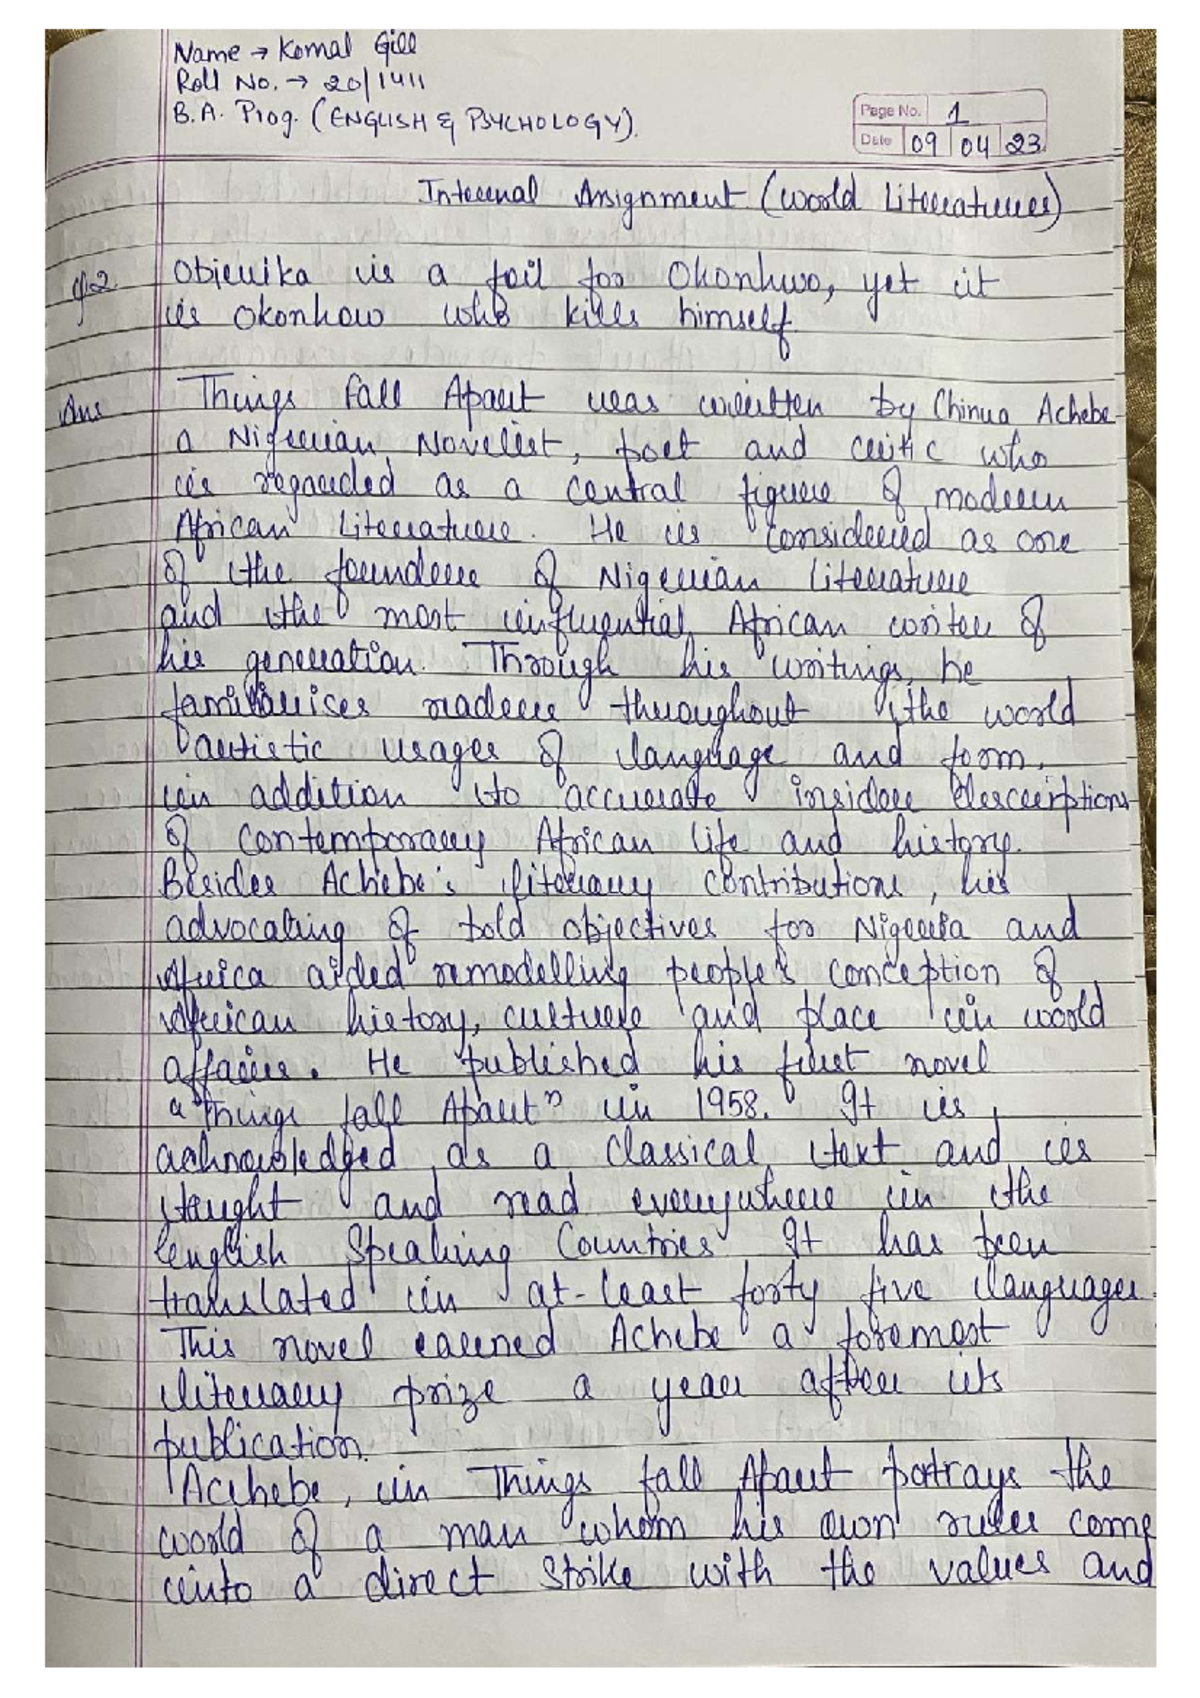 Name → Komal Gill
Roll No. → 20/1411
B.A. Prog. (ENGLISH & PSYCHOLOGY).
Page No. 1
Date 09 04 23
Internal Assignment (World Literatures)
Q2 Obierika is a foil for Okonkwo, yet it
is Okonkow who kills himself.
Ans Things Fall Apart was written by Chinua Achebe
a Nigerian Novelist, poet and critic who
is regarded as a central figure of modern
African Literature. He is considered as one
of the founders of Nigerian literature
and the most influential African writer of
his generation. Through his writings, he
familiarises readers throughout the world
artistic usages of language and form,
in addition to accurate insider descriptions
of contemporary African life and history.
Besides Achebe's literary contributions, his
advocating of bold objectives for Nigeria and
Africa aided remodelling people's conception of
African history, culture and place in world
affairs. He published his first novel
"Things fall Apart" in 1958. It is
acknowledged as a classical text and is
taught and read everywhere in the
english Speaking Countries It has been
translated in at-least forty five languages.
This novel earned Achebe a foremost
literary prize a year after its
publication.
Achebe, in Things fall Apart portrays the
world of a man whom his own rules come
into a direct strike with the values and